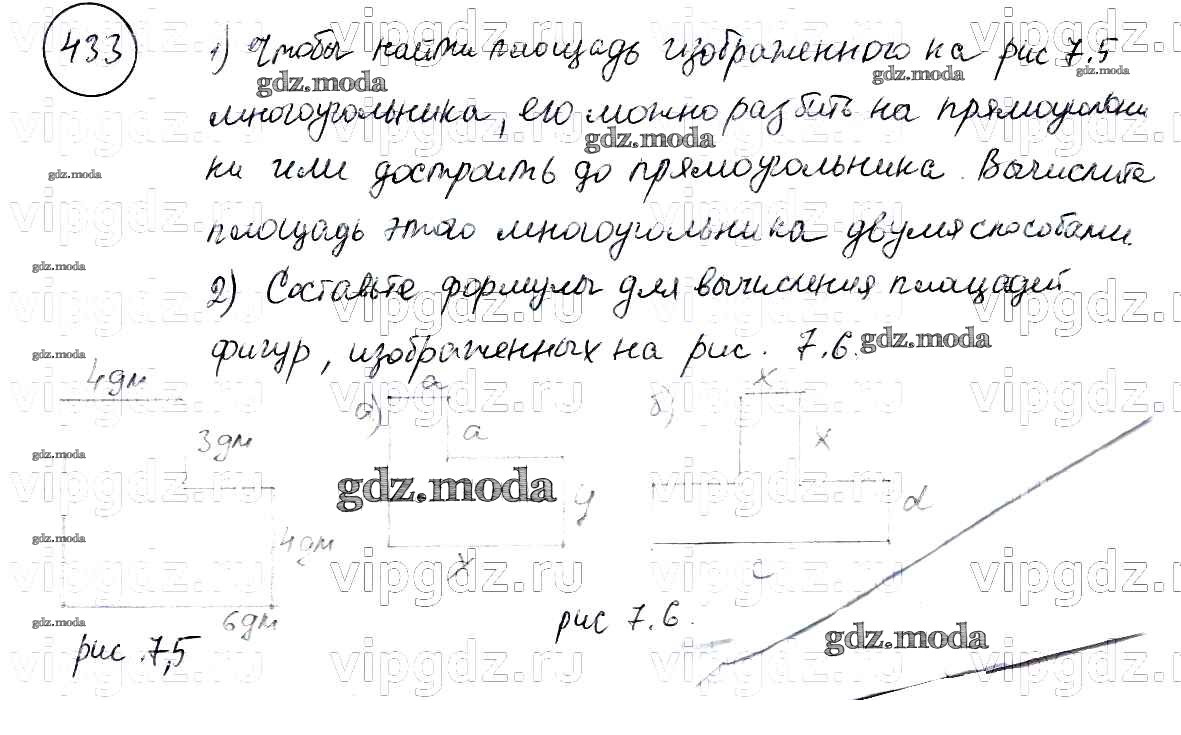 433
1) Чтобы найти площадь изображенного на рис 7.5
многоугольника, его можно разбить на прямоугольни
ки или достроить до прямоугольника. Вычислите
площадь этого многоугольника двумя способами.
2) Составьте формулы для вычисления площадей
фигур, изображенных на рис. 7.6.
4дм
3дм
4дм
6дм
рис. 7,5
а)
a
a
y
x
б)
x
x
d
c
рис 7.6.
gdz.moda
vipgdz.ru